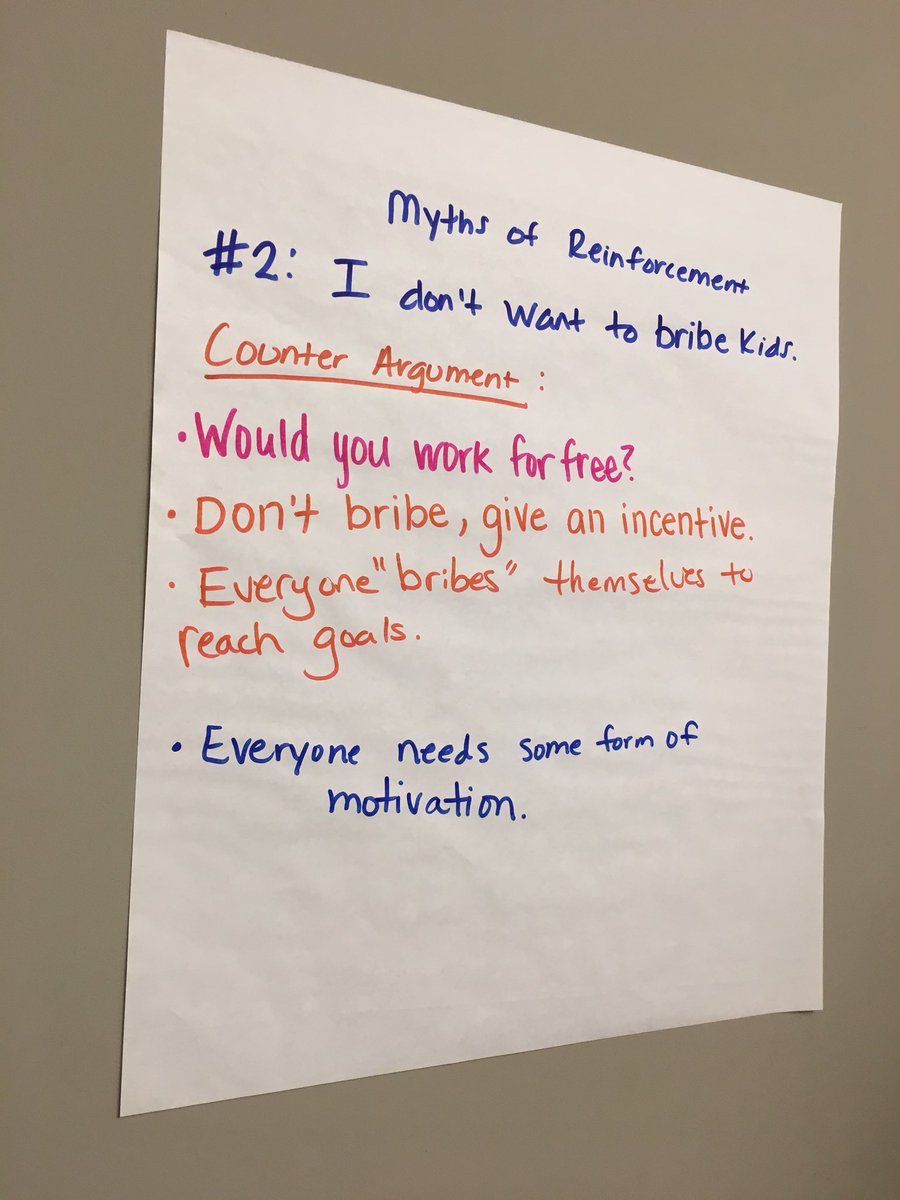 Myths of Reinforcement
#2: I don't want to bribe kids.
Counter Argument:
• Would you work for free?
• Don't bribe, give an incentive.
• Everyone "bribes" themselves to
reach goals.
• Everyone needs some form of
motivation.